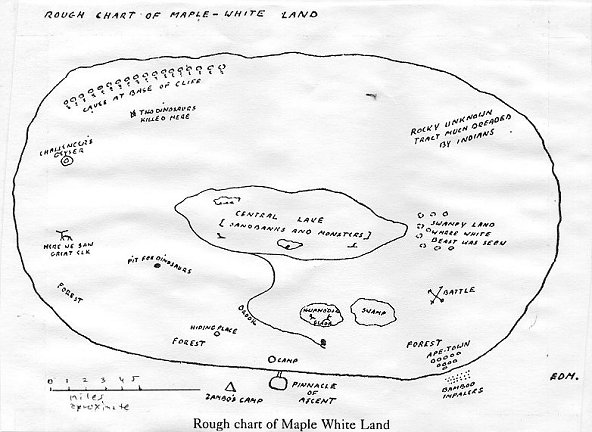 ROUGH CHART OF MAPLE-WHITE LAND
CAVES AT BASE OF CLIFF
TWO DINOSAURS
KILLED HERE
ROCKY UNKNOWN
TRACT MUCH DREADED
BY INDIANS
CHALLENGERS
GEYSER
CENTRAL LAKE
[SANDBANKS AND MONSTERS]
SWAMPY LAND
WHERE WHITE
BEAST WAS SEEN
HERE WE SAW
GREAT ELK
PIT FOR DINOSAURS
FOREST
BROOK
BATTLE
IGUANODON
GLADE
SWAMP
HIDING PLACE
FOREST
FOREST
APE-TOWN
CAMP
BAMBOO
IMPALERS
PINNACLE
OF
ASCENT
ZAMBO'S CAMP
0 1 2 3 4 5
miles
aproximate
E.D.M.
Rough chart of Maple White Land